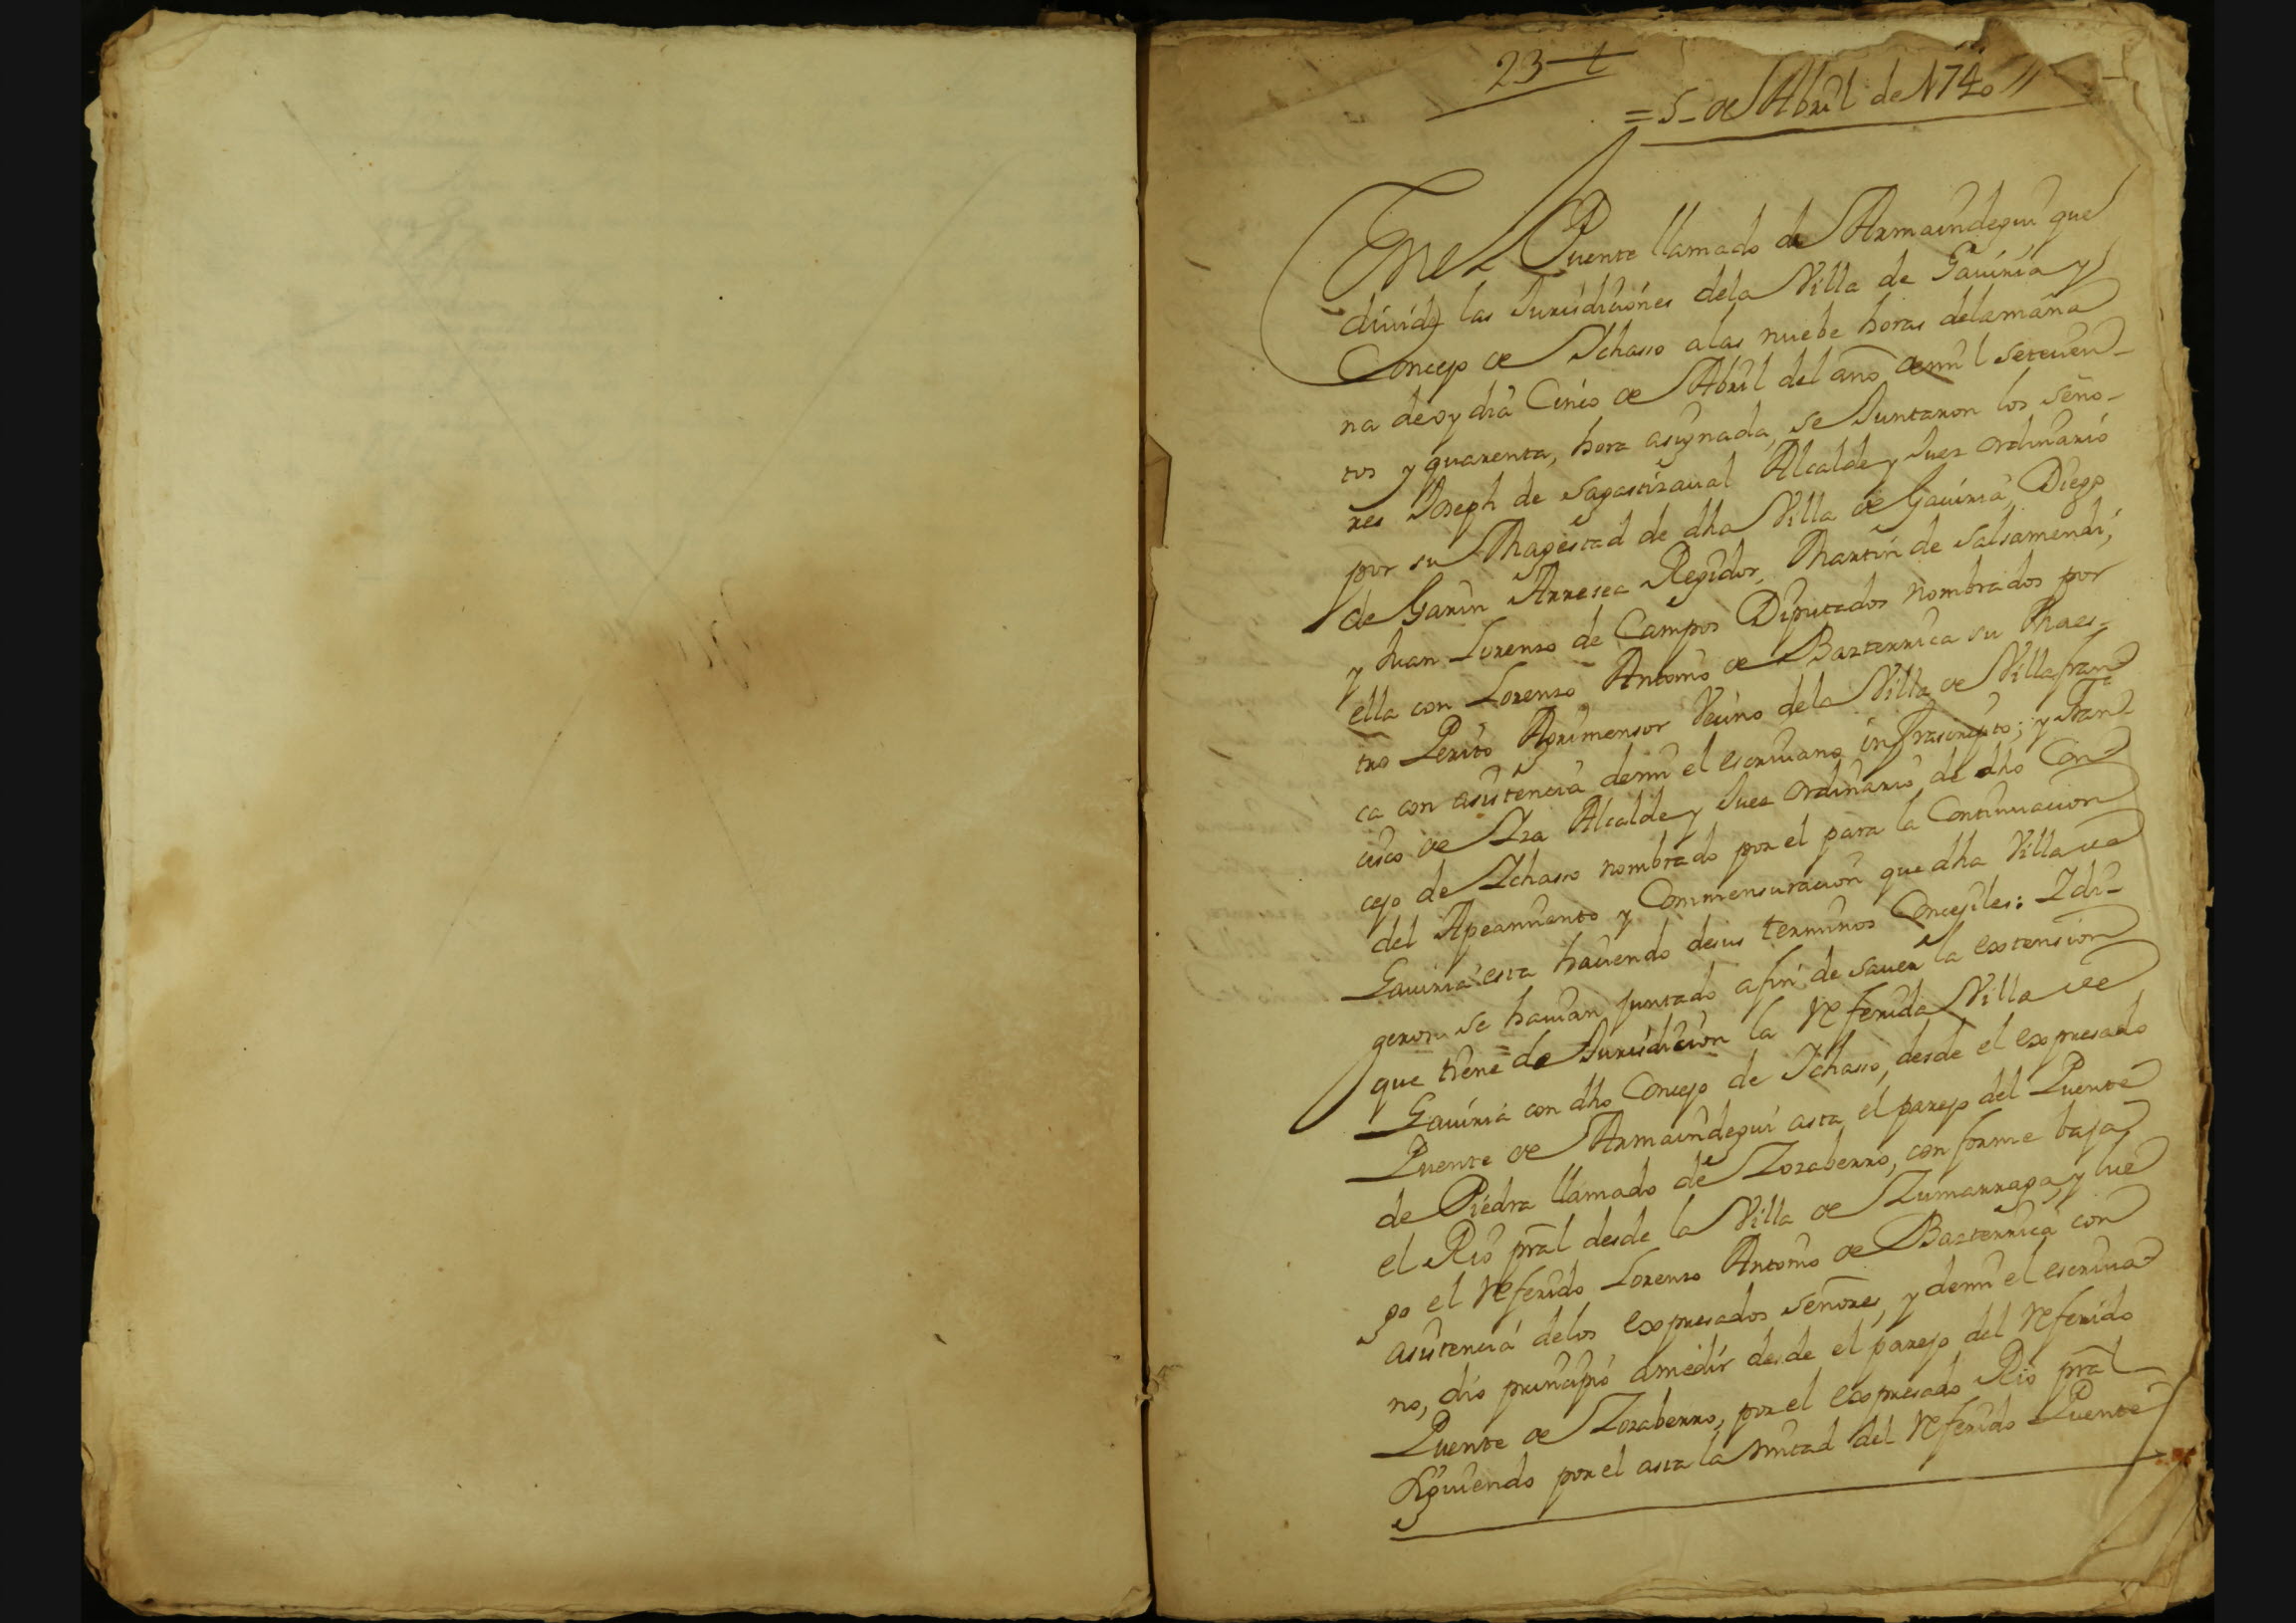 23
= 5- de Abril de 1740 //
En el Puente llamado de Armaindegui que
divide las Jurisdiciones dela Villa de Gaviria y
Concejo de Ichasso alas nuebe horas delamaña
na de oy dia Cinco de Abril del año demil setecien-
tos y quarenta, hora asignada, se Juntaron los seño-
res Joseph de Sagastizaval Alcalde y Juez ordinario
por su Magestad de dha Villa de Gaviria, Diego
de Garin Arresea Regidor, Martin de Salsamendi,
y Juan Lorenzo de Campos Diputados nombrados por
ella con Lorenzo Antonio de Bazterrica su Maes-
tro Perito Agrimensor Vecino dela Villa de Villafran
ca con asistencia demi el escrivano infrascripto; y Fran
cisco de Iza Alcalde y Juez ordinario de dho Con
cejo de Ichasso nombrado por el para la Continuacion
del Apeamiento y Commensuracion que dha Villa de
Gaviria esta haciendo desus terminos Concejiles: I di-
geron se havian juntado afin de saver la extension
que tiene de Jurisdicion la referida Villa de
Gaviria con dho Concejo de Ichasso, desde el expresado
Puente de Armaindegui asta el parejo del Puente
de Piedra llamado de Zozaberro, conforme baja
el Rio pral desde la Villa de Zumarraga, y lue
go el referido Lorenzo Antonio de Bazterrica con
asistencia delos expresados señores, y demi el escriva
no, dio principio amedir desde el parejo del referido
Puente de Zozaberro, por el expresado Rio pral
siguiendo por el asta la mitad del referido Puente